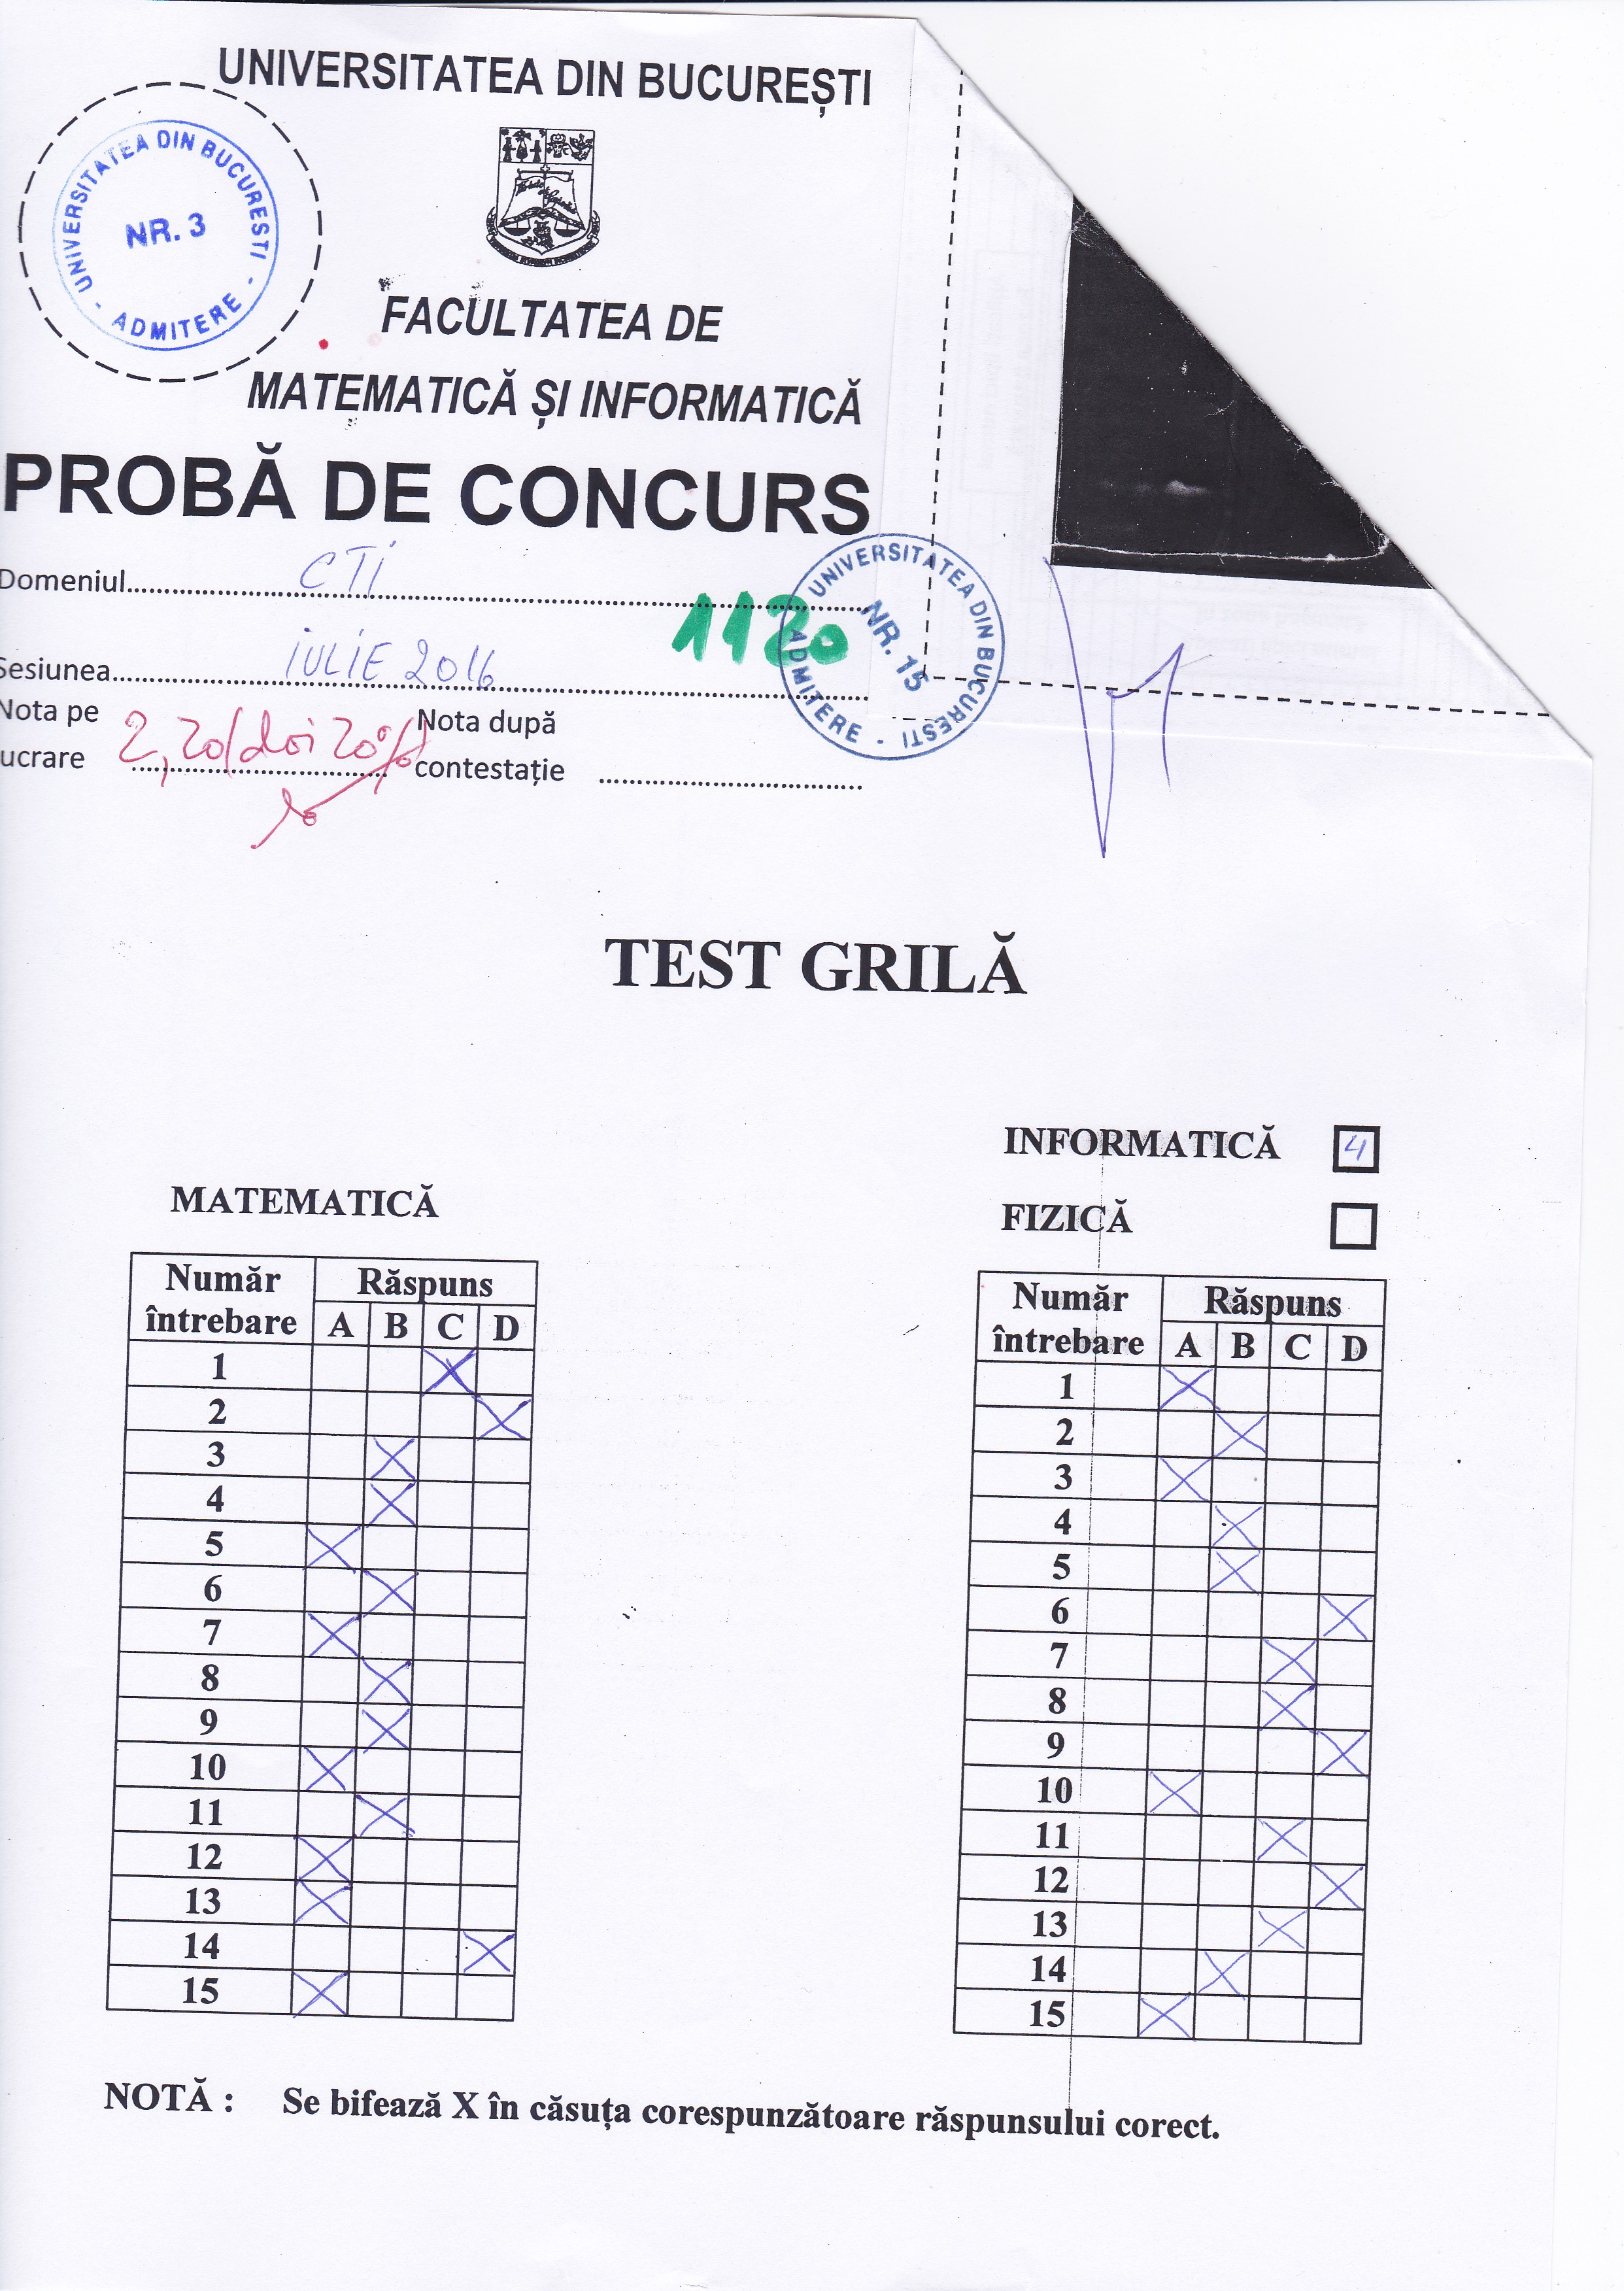 UNIVERSITATEA DIN BUCUREȘTI
UNIVERSITATEA DIN BUCURESTI - ADMITERE -
NR. 3
FACULTATEA DE
MATEMATICĂ ȘI INFORMATICĂ
PROBĂ DE CONCURS
Domeniul CTI
1120
Sesiunea IULIE 2016
UNIVERSITATEA DIN BUCUREȘTI - ADMITERE
NR. 15
Nota pe Nota după
ucrare 2,20 (doi 20%) contestație
TEST GRILĂ
INFORMATICĂ 4
FIZICĂ
MATEMATICĂ
Număr Răspuns
întrebare A B C D
1 X
2 X
3 X
4 X
5 X
6 X
7 X
8 X
9 X
10 X
11 X
12 X
13 X
14 X
15 X
Număr Răspuns
întrebare A B C D
1 X
2 X
3 X
4 X
5 X
6 X
7 X
8 X
9 X
10 X
11 X
12 X
13 X
14 X
15 X
NOTĂ : Se bifează X în căsuța corespunzătoare răspunsului corect.